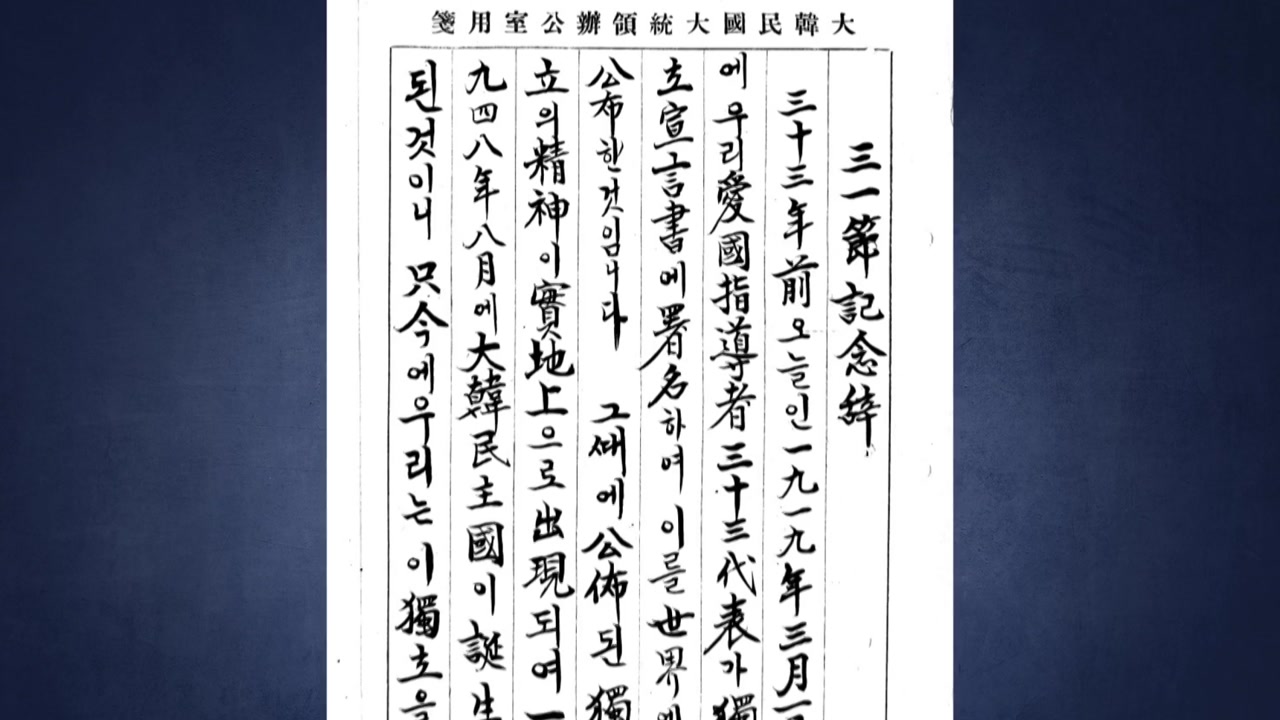 大韓民國大統領辦公室用箋
三一節記念辭
三十三年前오늘인一九一九年三月一
에우리愛國指導者三十三代表가獨
立宣言書에署名하여 이를世界에
公布한것임니다 그ᄯᅢ에公佈된獨
立의精神이實地上으로出現되여 一
九四八年八月에大韓民主國이誕生
된것이니 只今에우리는이獨立을